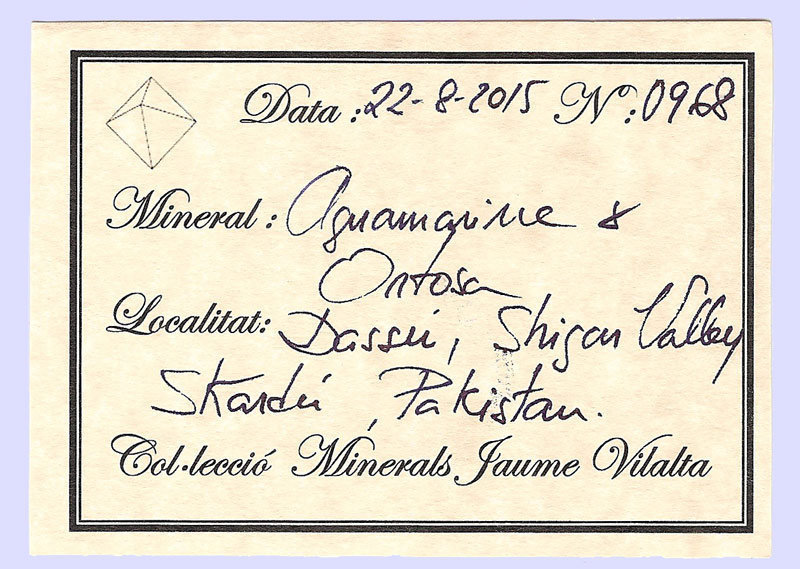 Data: 22-8-2015 Nº: 0968
Mineral: Aguamarine &
Ortosa
Localitat: Dassú, Shigar Valley
Skardú, Pakistan.
Col·lecció Minerals Jaume Vilalta